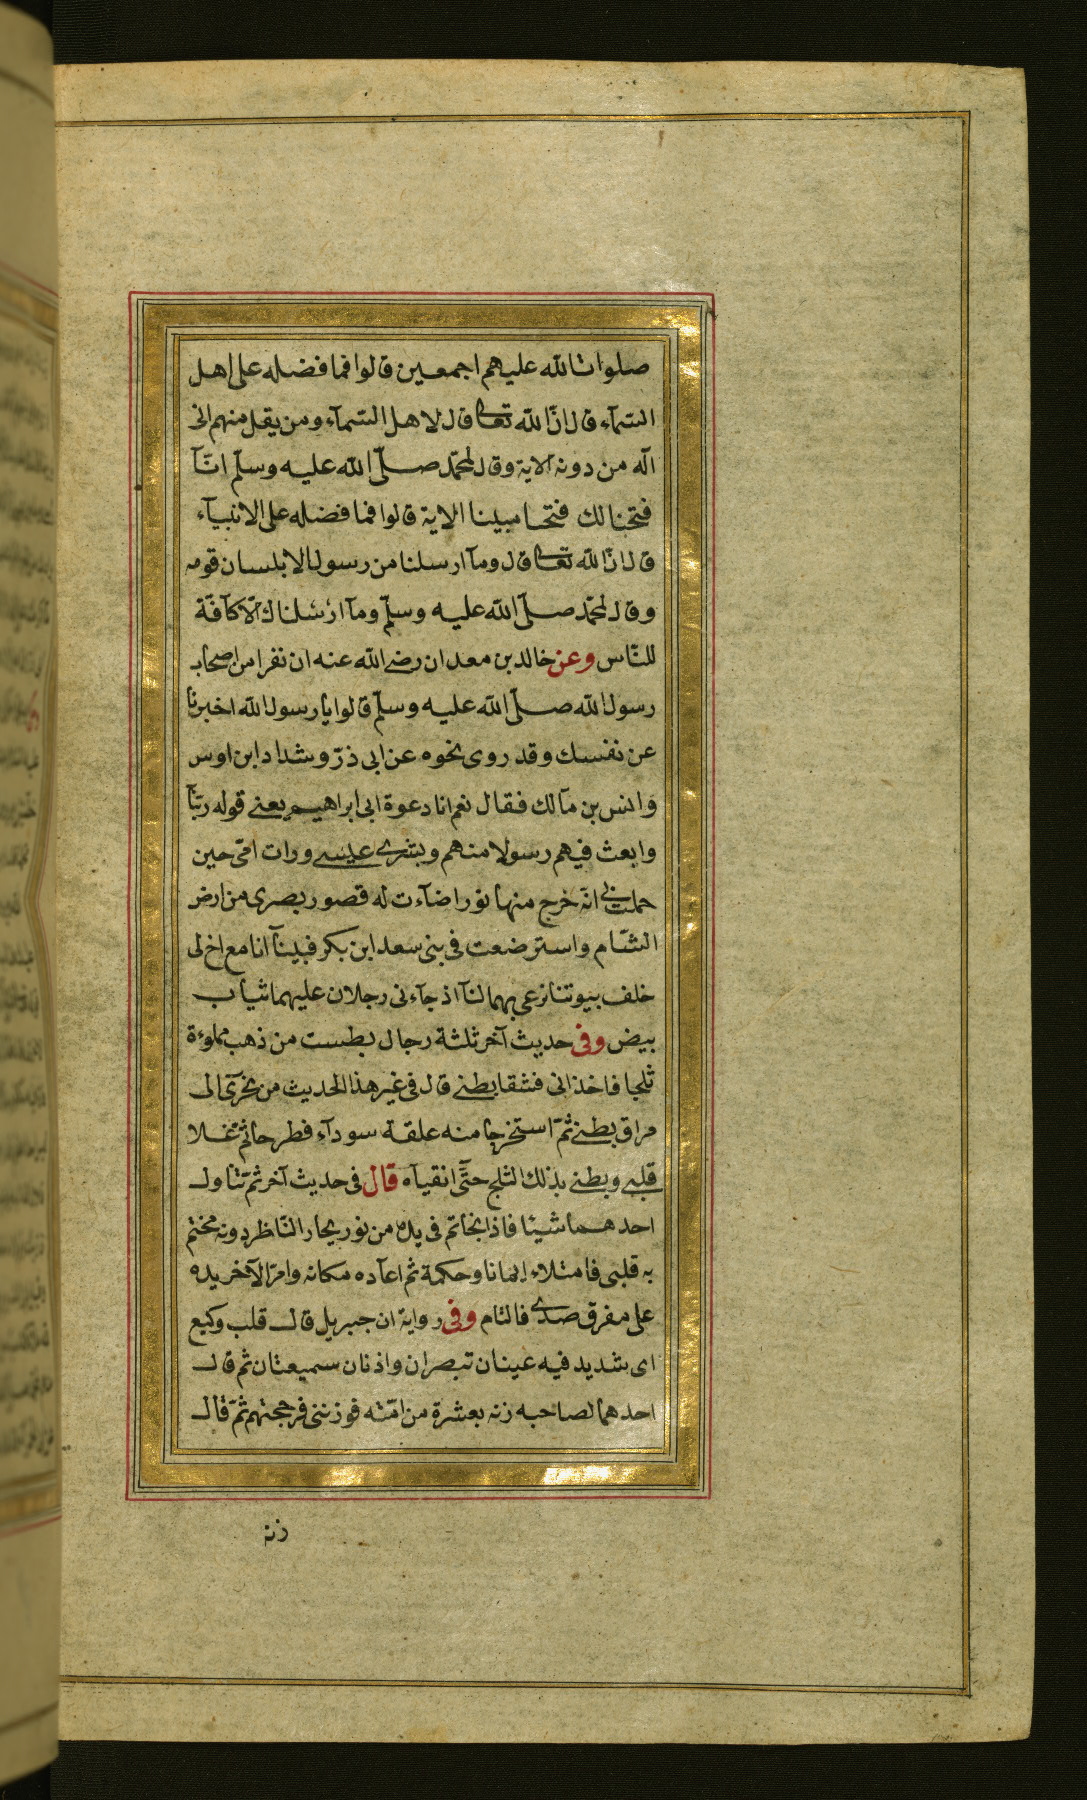 صلوات الله عليهم اجمعين قالوا فما فضله على اهل
السّمآء قال انّ الله تعالى قال لاهل السّمآء ومن يقل منهم انى
اله من دونه الاية وقال لمحمّد صلّى الله عليه وسلّم انّآ
فتحنا لك فتحا مبينا الاية قالوا فما فضله على الانبيآء
قال انّ الله تعالى قال ومآ ارسلنا من رسول الا بلسان قومه
وقال لمحمّد صلّى الله عليه وسلّم ومآ ارسلناك الّا كآفّة
للنّاس وعن خالد بن معدان رضى الله عنه ان نفرا من اصحاب
رسول الله صلّى الله عليه وسلّم قالوا يا رسول الله اخبرنا
عن نفسك وقد روى نحوه عن ابى ذرّ وشداد ابن اوس
وانس بن مآلك فقال نعم انا دعوة ابى ابراهيم يعنى قوله ربّنآ
وابعث فيهم رسولا منهم وبشرى عيسى ورات امّى حين
حملت بى انّه خرج منها نور اضآءت له قصور بصرى من ارض
الشّام واسترضعت فى بنى سعد ابن بكر فبينآ انا مع اخ لى
خلف بيوتنا نرعى بهما لنآ اذ جآءنى رجلان عليهما ثياب
بيض وفى حديث آخر ثلثة رجال بطست من ذهب مملوءة
ثلجا فاخذانى فشقا بطنى قال فى غير هذا الحديث من نحرى الى
مراق بطنى ثمّ استخرجا منه علقة سودآء فطرحاها ثمّ غسلا
قلبى وبطنى بذلك الثلج حتّى انقياه قال فى حديث آخر ثمّ تناول
احدهما شيئا فاذا بخاتم فى يده من نور يحار النّاظر دونه فختم
به قلبى فامتلاء ايمانا وحكمة ثم اعآده مكانه وامرّ الآخر يده
على مفرق صدرى فالتام وفى رواية ان جبريل قال قلب وكيع
اى شديد فيه عينان تبصران واذنان سميعتان ثم قال
احدهما لصاحبه زنه بعشرة من امّته فوزننى فرجحتهم ثمّ قال
زنه